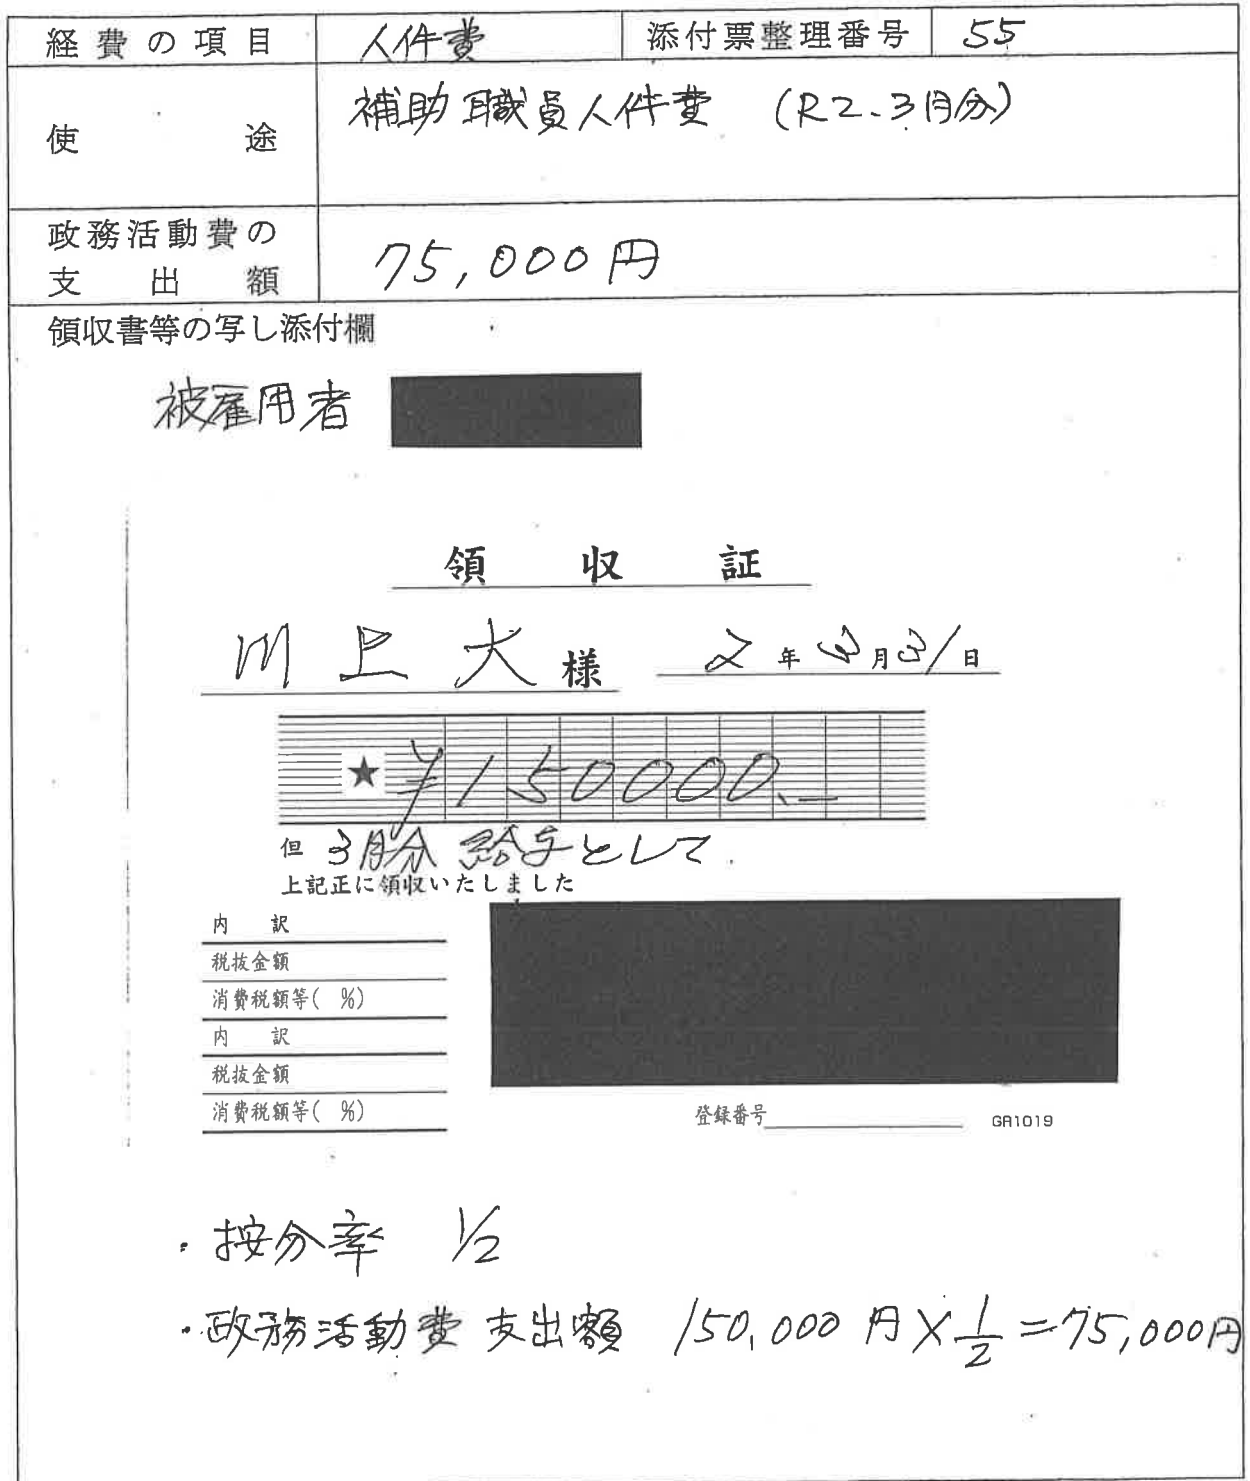 経費の項目 人件費 添付票整理番号 55
使途 補助職員人件費 (R2.3月分)
政務活動費の
支出額 75,000円
領収書等の写し添付欄
被雇用者
領収証
川上大様 2年3月31日
★ ¥150000.―
但 3月分 給与として
上記正に領収いたしました
内訳
税抜金額
消費税額等( %)
内訳
税抜金額
消費税額等( %)
登録番号 GA1019
・按分率 1/2
・政務活動費支出額 150,000円×1/2=75,000円